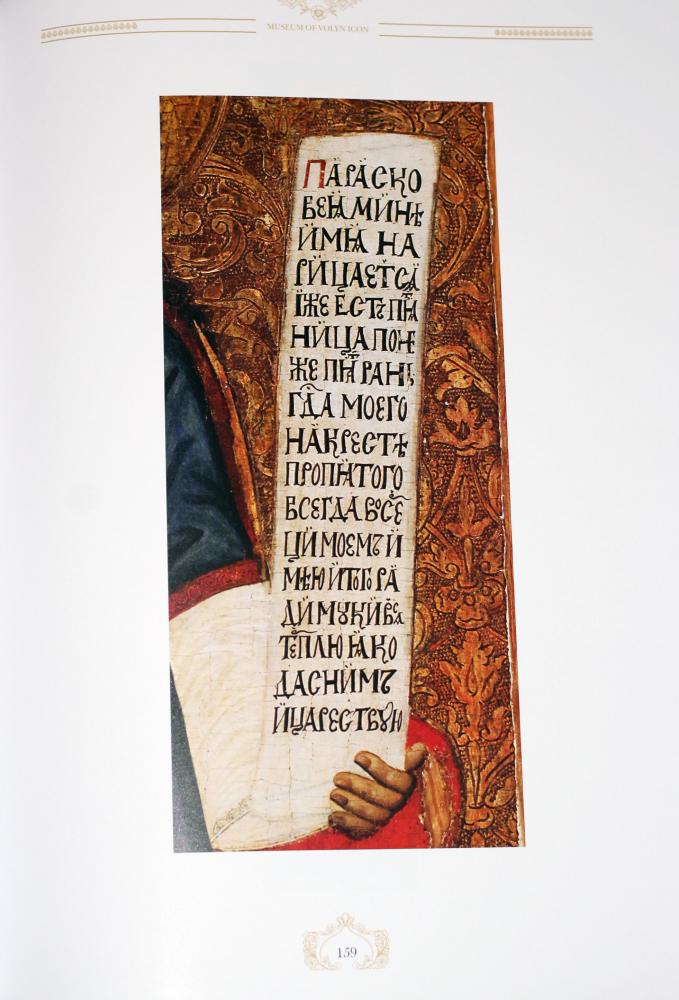 MUSEUM OF VOLYN ICON
ПАРАСКО
ВЕꙖ МИНѢ
ИМѦ НА
РИЦАЕТСѦ
ЇЖЕ ЕСТЪ ПѦ
НИЦА ПОНЕ
ЖЕ ПѦ РАНЪ
ГДА МОЕГО
НА КРЕСТѢ
ПРОПѦТОГО
ВСЕГДА ВОСЕ
ЦИ МОЕМЪ И
МѢЮ И ТОГО РА
ДИ МУКИ ВСѦ
ТЕПЛЮ ꙖКО
ДА СНИМЪ
И ЦАРЕСТВУЮ
159